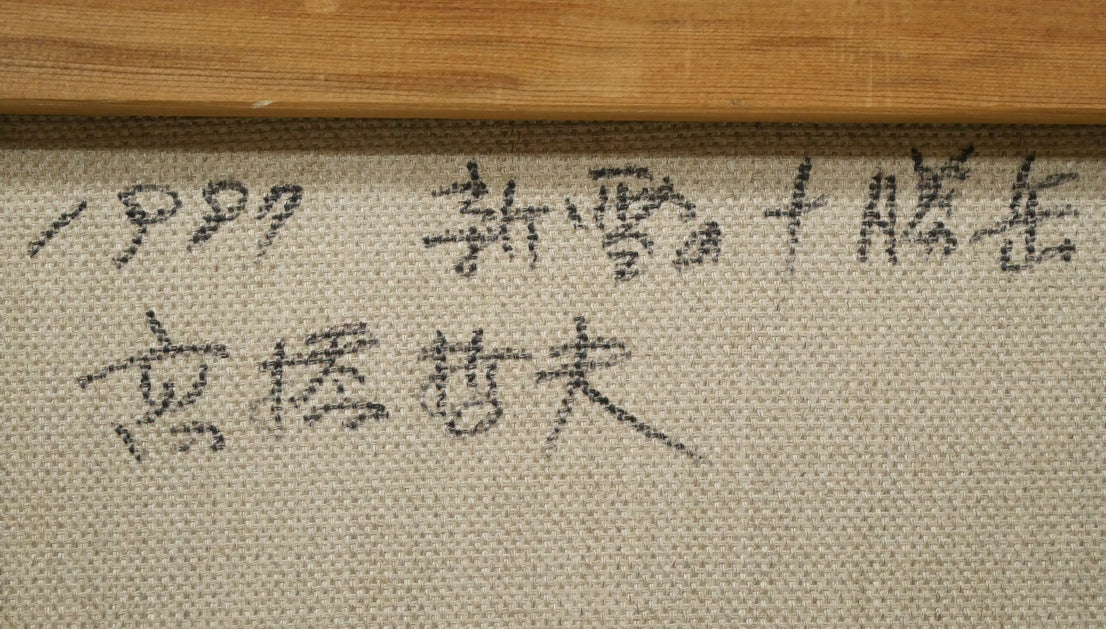 1997 新雪の十勝岳
高橋哲夫